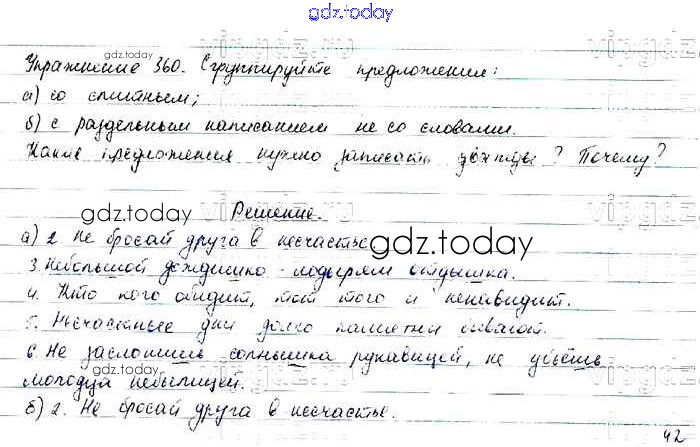 gdz.today
Упражнение 360. Сгруппируйте предложения:
gdz.today
а) со слитным;
б) с раздельным написанием не со словами.
Какие предложения нужно записать дважды? Почему?
gdz.today
Решение.
а) 2. Не бросай друга в несчастье.
gdz.today
3. Небольшой дождишко - лодырям отдышка.
4. Кто кого обидит, тот того и ненавидит.
5. Несчастные дни долго памятны бывают.
6. Не заслонишь солнышка рукавицей, не убьёшь
gdz.today
молодца небылицей.
б) 2. Не бросай друга в несчастье.
42